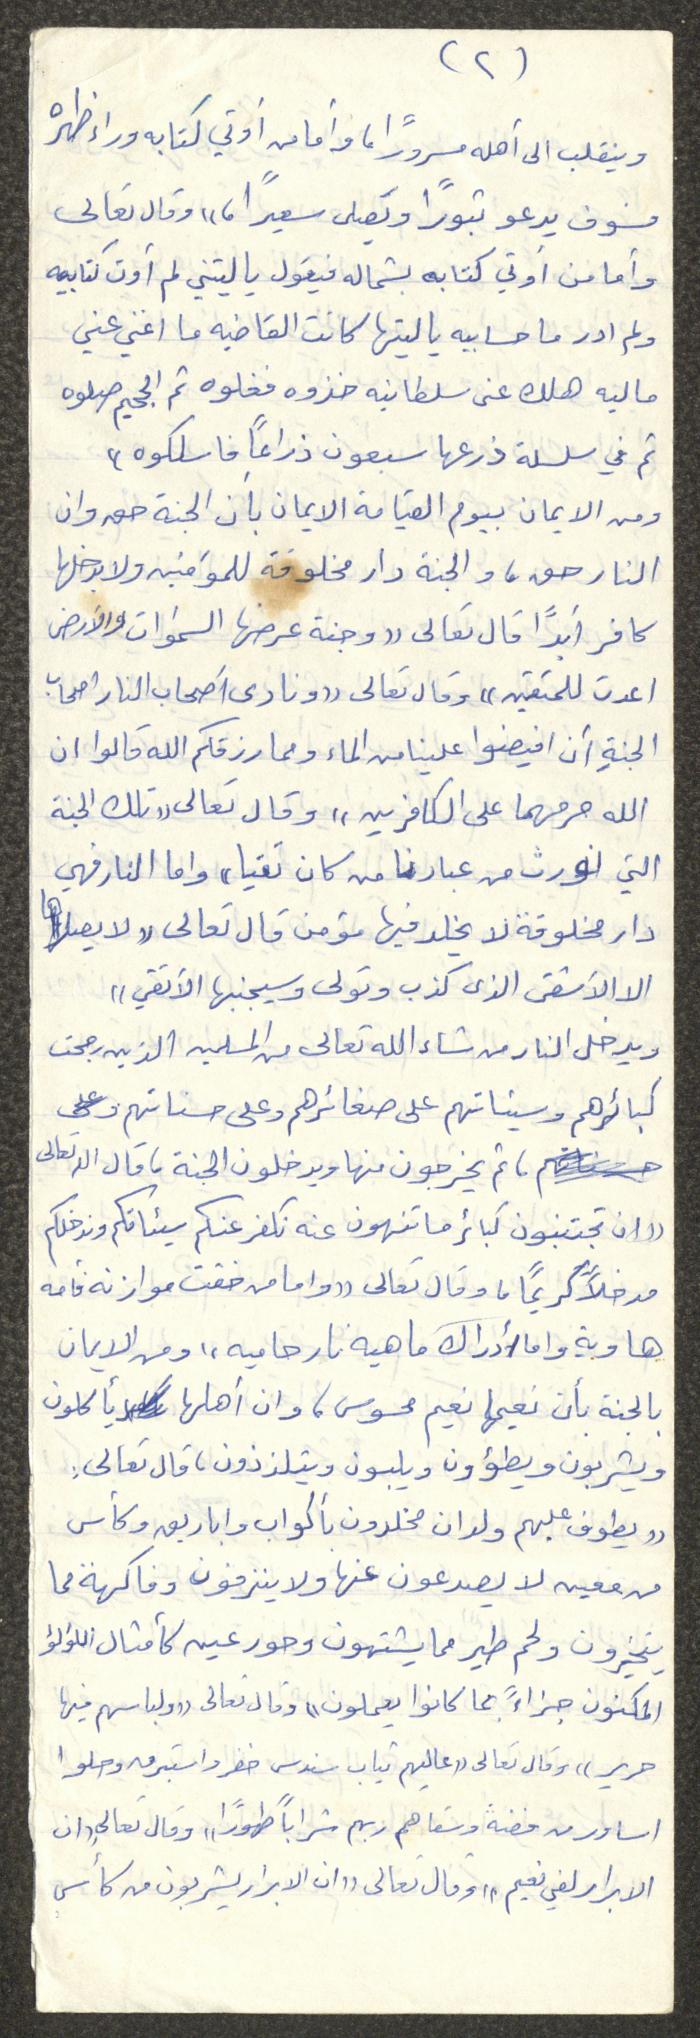 (٢)
وينقلب الى أهله مسرورًا، وأما من أوتي كتابه وراء ظهره
فسوف يدعو ثبورًا ويصلى سعيرًا)) وقال تعالى
وأما من أوتي كتابه بشماله فيقول ياليتني لم أوت كتابيه
ولم ادر ما حسابيه ياليتها كانت القاضيه ما اغنى عني
ماليه هلك عني سلطانيه خذوه فغلوه ثم الجحيم صلوه
ثم في سلسلة ذرعها سبعون ذراعاً فاسلكوه))
ومن الايمان بيوم القيامة الايمان بأن الجنة حق وان
النار حق، والجنة دار مخلوقة للمؤمنين ولا يدخلها
كافر أبدًا قال تعالى ((وجنة عرضها السموات والأرض
اعدت للمتقين)) وقال تعالى ((ونادى أصحاب النار اصحاب
الجنة أن افيضوا علينا من الماء ومما رزقكم الله قالوا ان
الله حرمهما على الكافرين)) وقال تعالى ((تلك الجنة
التي نورث من عبادنا من كان تقيا)) واما النار فهي
دار مخلوقة لا يخلد فيها مؤمن قال تعالى ((لا يصلاها
الا الأشقى الذى كذب وتولى وسيجنبها الأتقى))
ويدخل النار من شاء الله تعالى من المسلمين الذين رجحت
كبائرهم وسيئاتهم على صغائرهم وعلى حسناتهم
، ثم يخرجون منها ويدخلون الجنة، قال الله تعالى
((ان تجتنبون كبائر ما تنهون عنه نكفر عنكم سيئاتكم وندخلكم
مدخلاً كريمًا، وقال تعالى ((واما من خفت موازنه فأمه
هاوية واما أدراك ماهيه نار حاميه)) ومن الايمان
بالجنة بأن نعيمها نعيم محسوس، وان أهلها يأكلون
ويشربون ويطؤون ويلبون ويتلذذون، قال تعالى:
((يطوف عليهم ولدان مخلدون بأكواب واباريق وكأس
من معين لا يصدعون عنها ولا ينزفون وفاكهة مما
يتخيرون ولحم طير مما يشتهون وحور عين كأمثال اللؤلؤ
المكنون جزاءً بما كانوا يعملون)) وقال تعالى ((ولباسهم فيها
حرير)) وقال تعالى ((عاليهم ثياب سندس خضر واستبرق وحلوا
اساور من فضة وسقاهم ربهم شراباً طهورًا)) وقال تعالى ((ان
الابرار لفي نعيم)) وقال تعالى ((ان الابرار يشربون من كأس